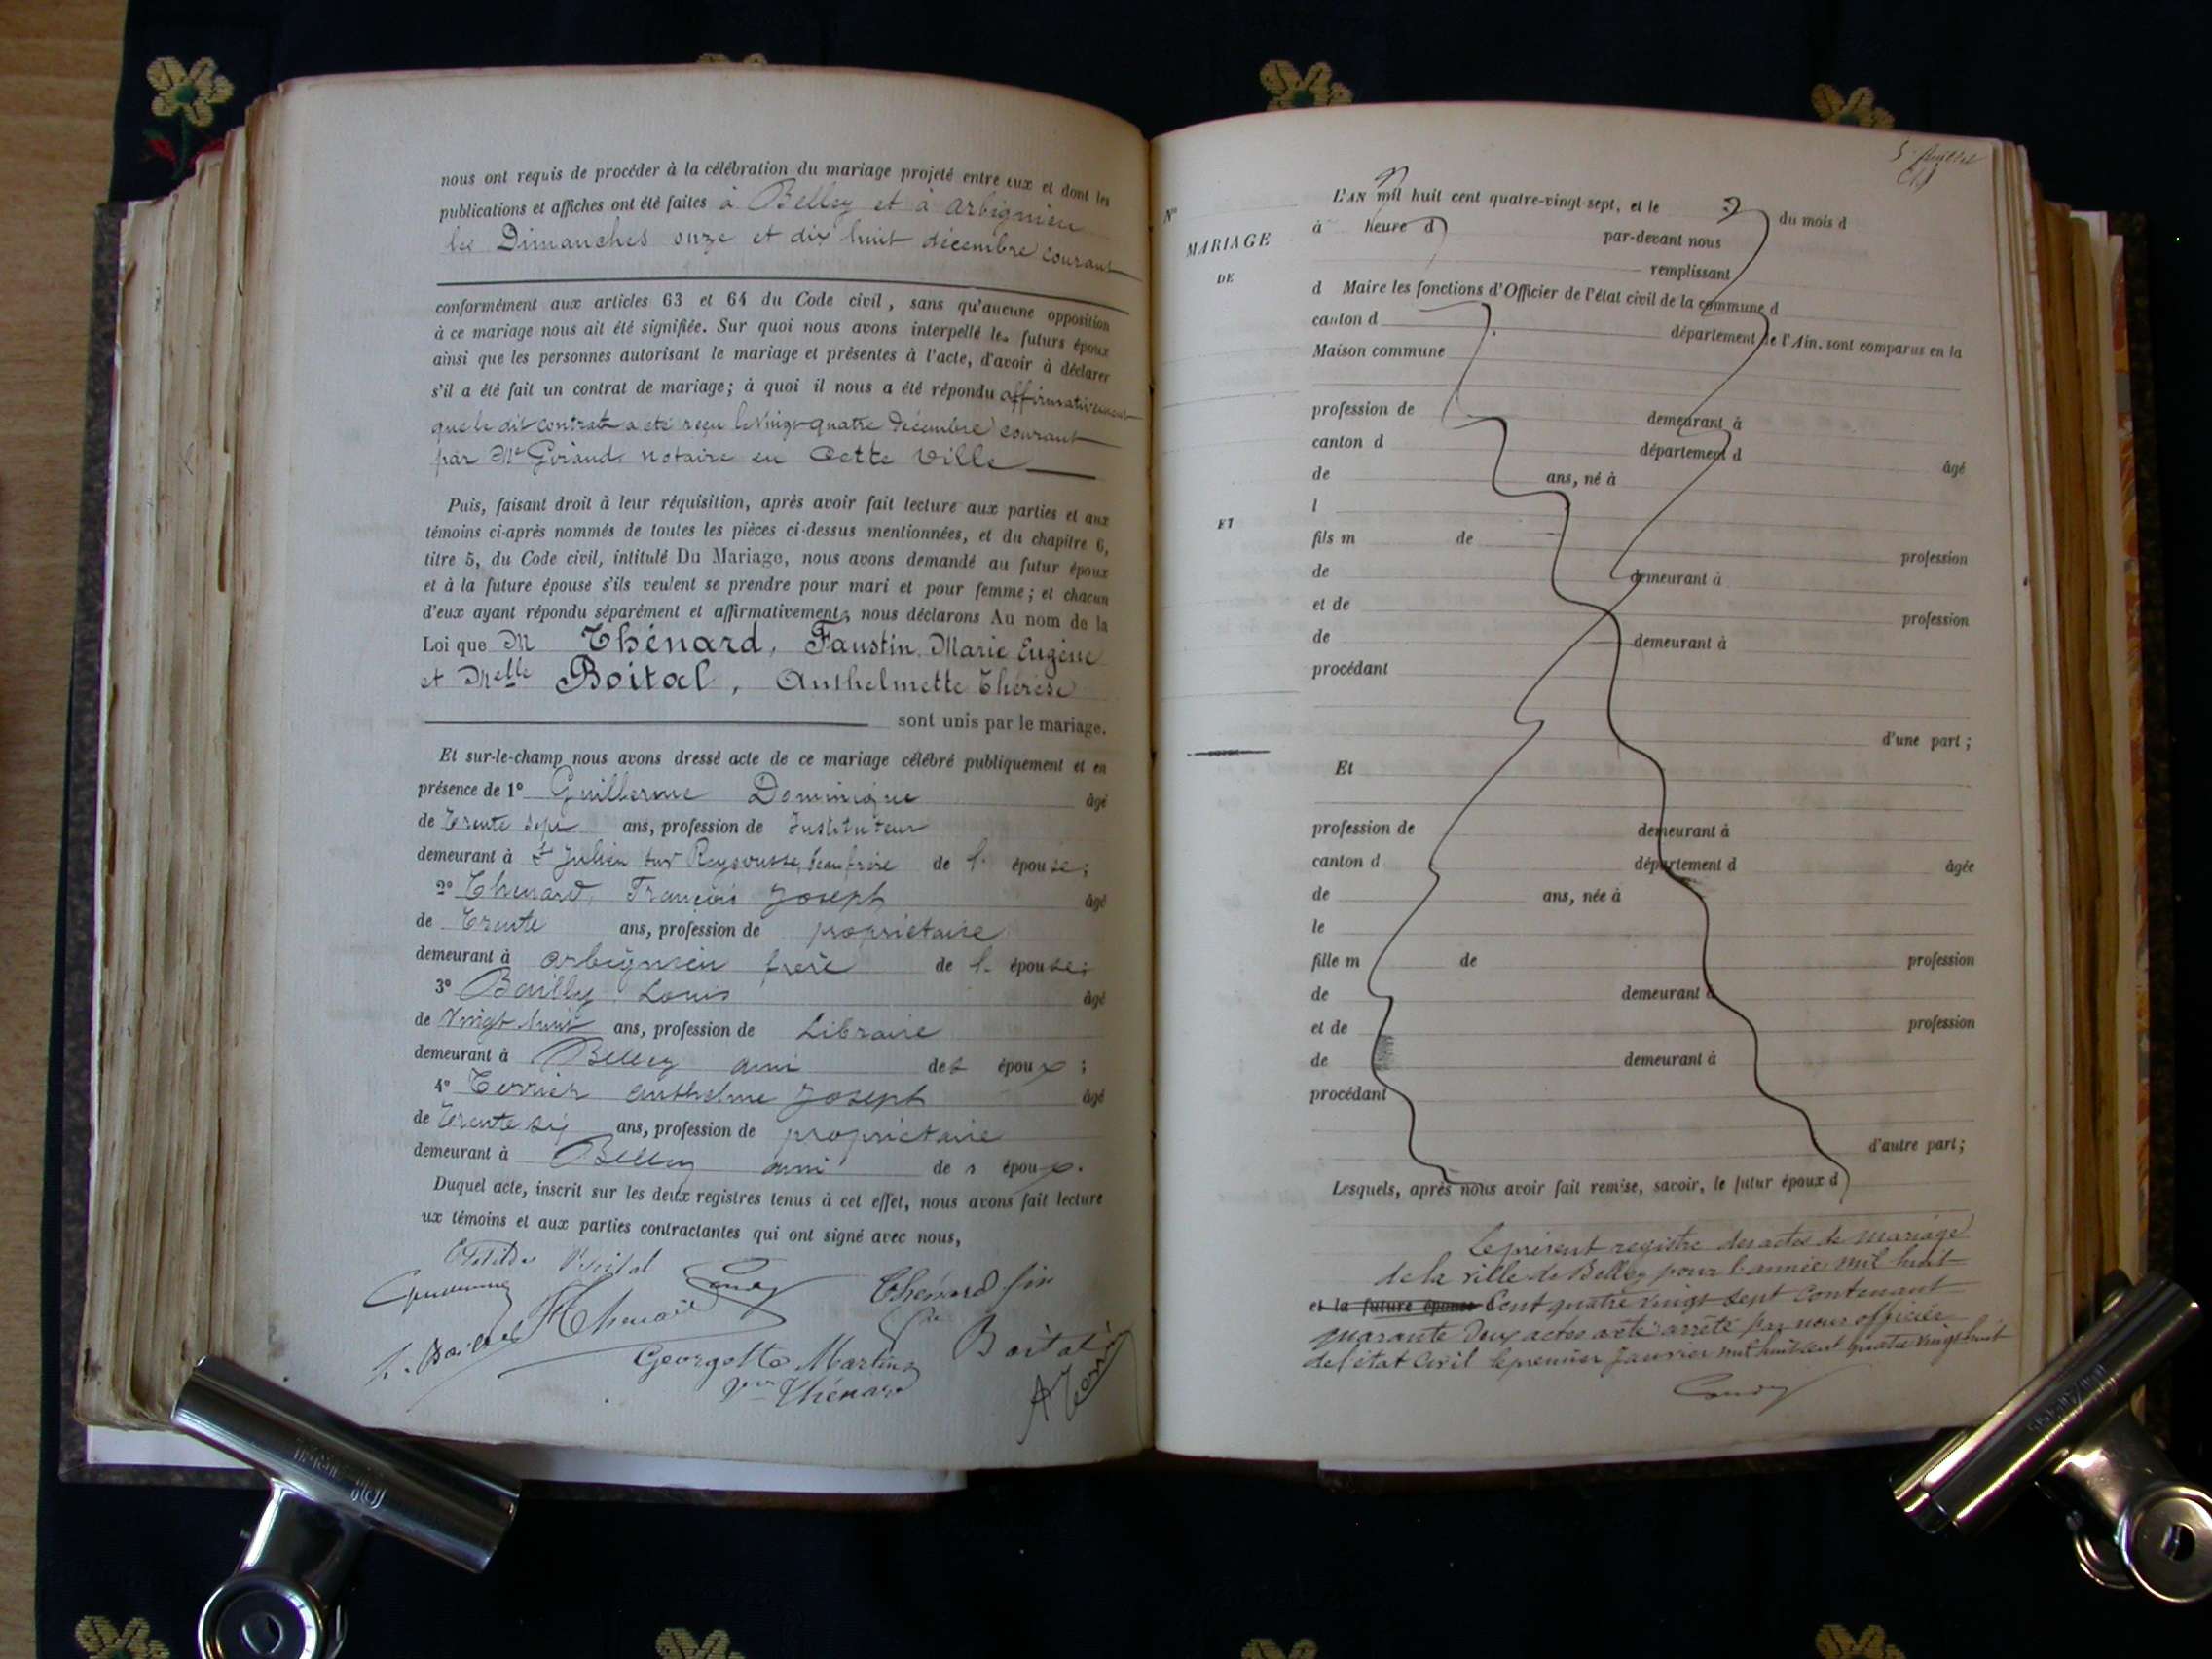 nous ont requis de procéder à la célébration du mariage projeté entre eux et dont les
publications et affiches ont été faites à Belley et à arbignieu
les Dimanches onze et dix huit décembre courant
conformément aux articles 63 et 64 du Code civil, sans qu'aucune opposition
à ce mariage nous ait été signifiée. Sur quoi nous avons interpellé les futurs époux
ainsi que les personnes autorisant le mariage et présentes à l'acte, d'avoir à déclarer
s'il a été fait un contrat de mariage; à quoi il nous a été répondu affirmativement
que le dit contrat a été reçu le vingt quatre décembre courant
par Me Giraud notaire en cette ville
Puis, faisant droit à leur réquisition, après avoir fait lecture aux parties et aux
témoins ci-après nommés de toutes les pièces ci-dessus mentionnées, et du chapitre 6,
titre 5, du Code civil, intitulé Du Mariage, nous avons demandé au futur époux
et à la future épouse s'ils veulent se prendre pour mari et pour femme; et chacun
d'eux ayant répondu séparément et affirmativement, nous déclarons Au nom de la
Loi que M Thénard, Faustin Marie Eugène
et Melle Boital, Anthelmette Thérèse
sont unis par le mariage.
Et sur-le-champ nous avons dressé acte de ce mariage célébré publiquement et en
présence de 1° Guillerme Dominique âgé
de Trente sept ans, profession de Instituteur
demeurant à St Julien sur Reyssouze, beau frère de l. épouse;
2° Thenard, François Joseph âgé
de Trente ans, profession de propriétaire
demeurant à arbignieu frere de l. épouse;
3° Bailly Louis âgé
de Vingt huit ans, profession de Libraire
demeurant à Belley ami des époux;
4° Terrier anthelme Joseph âgé
de Trente six ans, profession de propriétaire
demeurant à Belley ami de s époux.
Duquel acte, inscrit sur les deux registres tenus à cet effet, nous avons fait lecture
ux témoins et aux parties contractantes qui ont signé avec nous,
Boital
Thénard fin
Boital
Georgette Martin
Thénard
N°
MARIAGE
DE
ET
L'AN mil huit cent quatre-vingt-sept, et le du mois d
à heure d par-devant nous
remplissant
d Maire les fonctions d'Officier de l'état civil de la commune d
canton d département de l'Ain. sont comparus en la
Maison commune
profession de demeurant à
canton d département d âgé
de ans, né à
l
fils m de profession
de demeurant à
et de profession
de demeurant à
procédant
d'une part;
Et
profession de demeurant à
canton d département d âgée
de ans, née à
le
fille m de profession
de demeurant à
et de profession
de demeurant à
procédant
d'autre part;
Lesquels, après nous avoir fait remise, savoir, le futur époux d
Le présent registre des actes de mariage
de la ville de Belley pour l'année mil huit
et la future épouse Cent quatre vingt sept contenant
quarante deux actes a été arrêté par nous officier
de l'état civil le premier Janvier mil huit cent quatre vingt huit